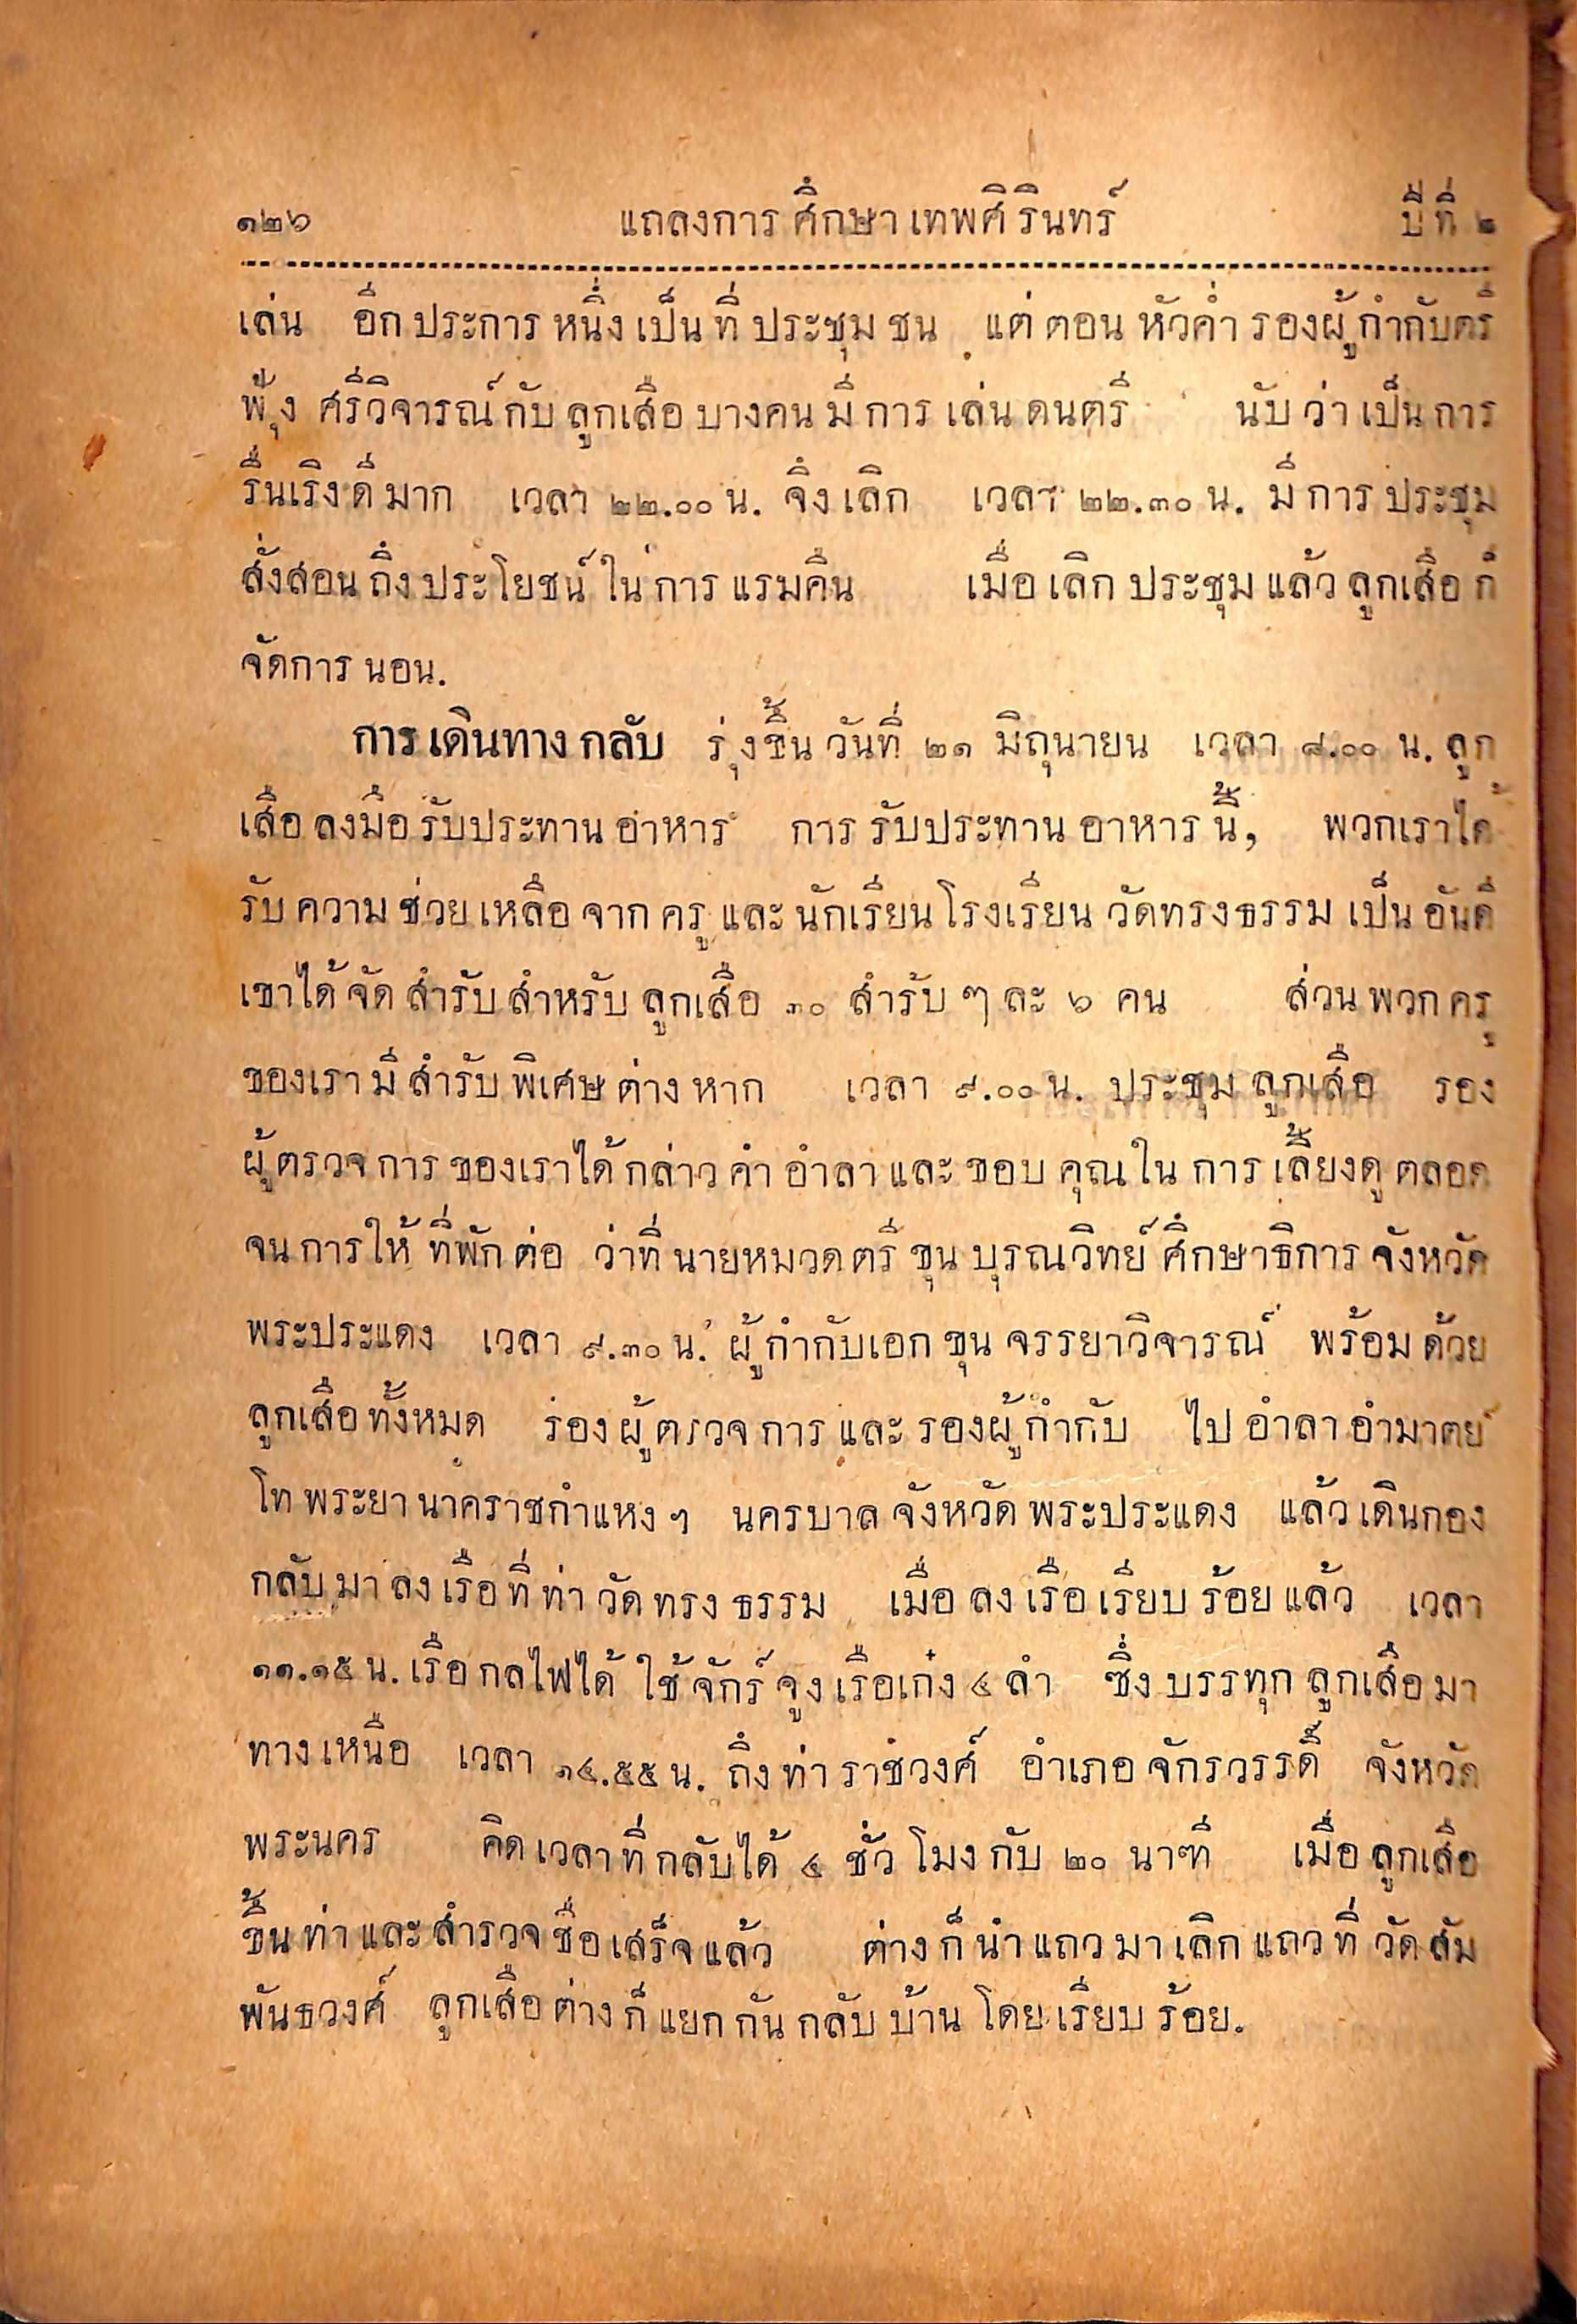 ๑๒๖ แถลงการศึกษาเทพศิรินทร์ ปีที่ ๒
เล่น อีกประการหนึ่งเป็นที่ประชุมชน แต่ตอนหัวค่ำรองผู้กำกับตรี
พุ้ง ศรีวิจารณ์กับลูกเสือบางคนมีการเล่นดนตรี นับว่าเป็นการ
รื่นเริงดีมาก เวลา ๒๒.๐๐ น. จึงเลิก เวลา ๒๒.๓๐ น. มีการประชุม
สั่งสอนถึงประโยชน์ในการแรมคืน เมื่อเลิกประชุมแล้วลูกเสือก็
จัดการนอน.
การเดินทางกลับ รุ่งขึ้นวันที่ ๒๑ มิถุนายน เวลา ๘.๐๐ น. ลูก
เสือลงมือรับประทานอาหาร การรับประทานอาหารนี้, พวกเราได้
รับความช่วยเหลือจากครูและนักเรียนโรงเรียนวัดทรงธรรมเป็นอันดี
เขาได้จัดสำรับสำหรับลูกเสือ ๓๐ สำรับ ๆ ละ ๖ คน ส่วนพวกครู
ของเรามีสำรับพิเศษต่างหาก เวลา ๙.๐๐ น. ประชุมลูกเสือ รอง
ผู้ตรวจการของเราได้กล่าวคำอำลาและขอบคุณในการเลี้ยงดูตลอด
จนการให้ที่พักต่อ ว่าที่นายหมวดตรี ขุนบุรณวิทย์ ศึกษาธิการจังหวัด
พระประแดง เวลา ๙.๓๐ น. ผู้กำกับเอก ขุนจรรยาวิจารณ์ พร้อมด้วย
ลูกเสือทั้งหมด รองผู้ตรวจการและรองผู้กำกับ ไปอำลาอำมาตย์
โท พระยานาคราชกำแหง ๆ นครบาลจังหวัดพระประแดง แล้วเดินกอง
กลับมาลงเรือที่ท่าวัดทรงธรรม เมื่อลงเรือเรียบร้อยแล้ว เวลา
๑๑.๑๕ น. เรือกลไฟได้ใช้จักร์จูงเรือเก๋ง ๔ ลำ ซึ่งบรรทุกลูกเสือมา
ทางเหนือ เวลา ๑๔.๕๕ น. ถึงท่าราชวงศ์ อำเภอจักรวรรดิ์ จังหวัด
พระนคร คิดเวลาที่กลับได้ ๔ ชั่วโมงกับ ๒๐ นาฑี เมื่อลูกเสือ
ขึ้นท่าและสำรวจชื่อเสร็จแล้ว ต่างก็นำแถวมาเลิกแถวที่วัดสัม
พันธวงศ์ ลูกเสือต่างก็แยกกันกลับบ้านโดยเรียบร้อย.